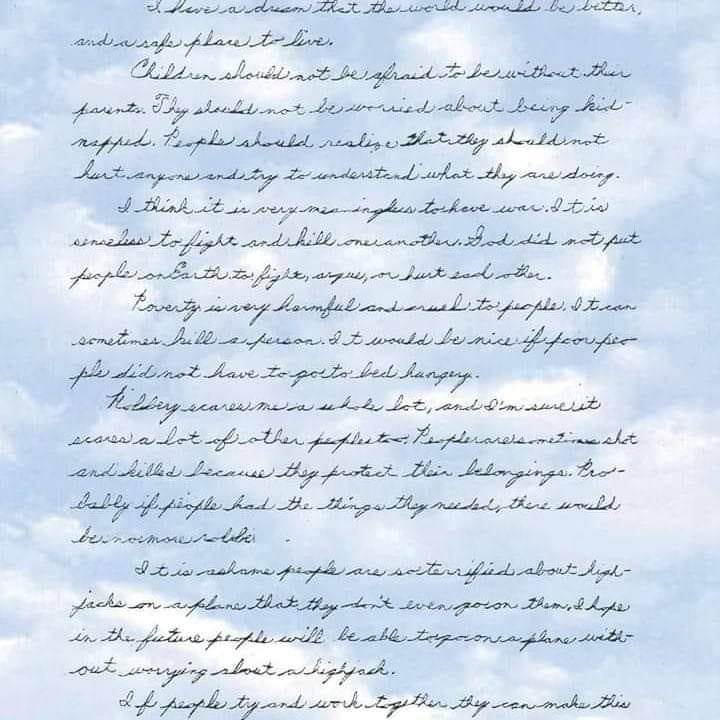 I have a dream that the world would be better,
and a safe place to live.
Children should not be afraid to be without their
parents. They should not be worried about being kid-
napped. People should realize that they should not
hurt anyone and try to understand what they are doing.
I think it is very meaningless to have war. It is
senseless to fight and kill one another. God did not put
people on Earth to fight, argue, or hurt each other.
Poverty is very harmful and cruel to people. It can
sometimes kill a person. It would be nice if poor peo-
ple did not have to go to bed hungery.
Robbery scares me a whole lot, and I'm sure it
scares a lot of other people too. People are sometimes shot
and killed because they protect their belongings. Pro-
bably if people had the things they needed, there would
be no more
It is ashame people are so terrified about high-
jacks on a plane that they don't even go on them. I hope
in the future people will be able to go on a plane with-
out worrying about a highjack.
If people try and work together they can make this